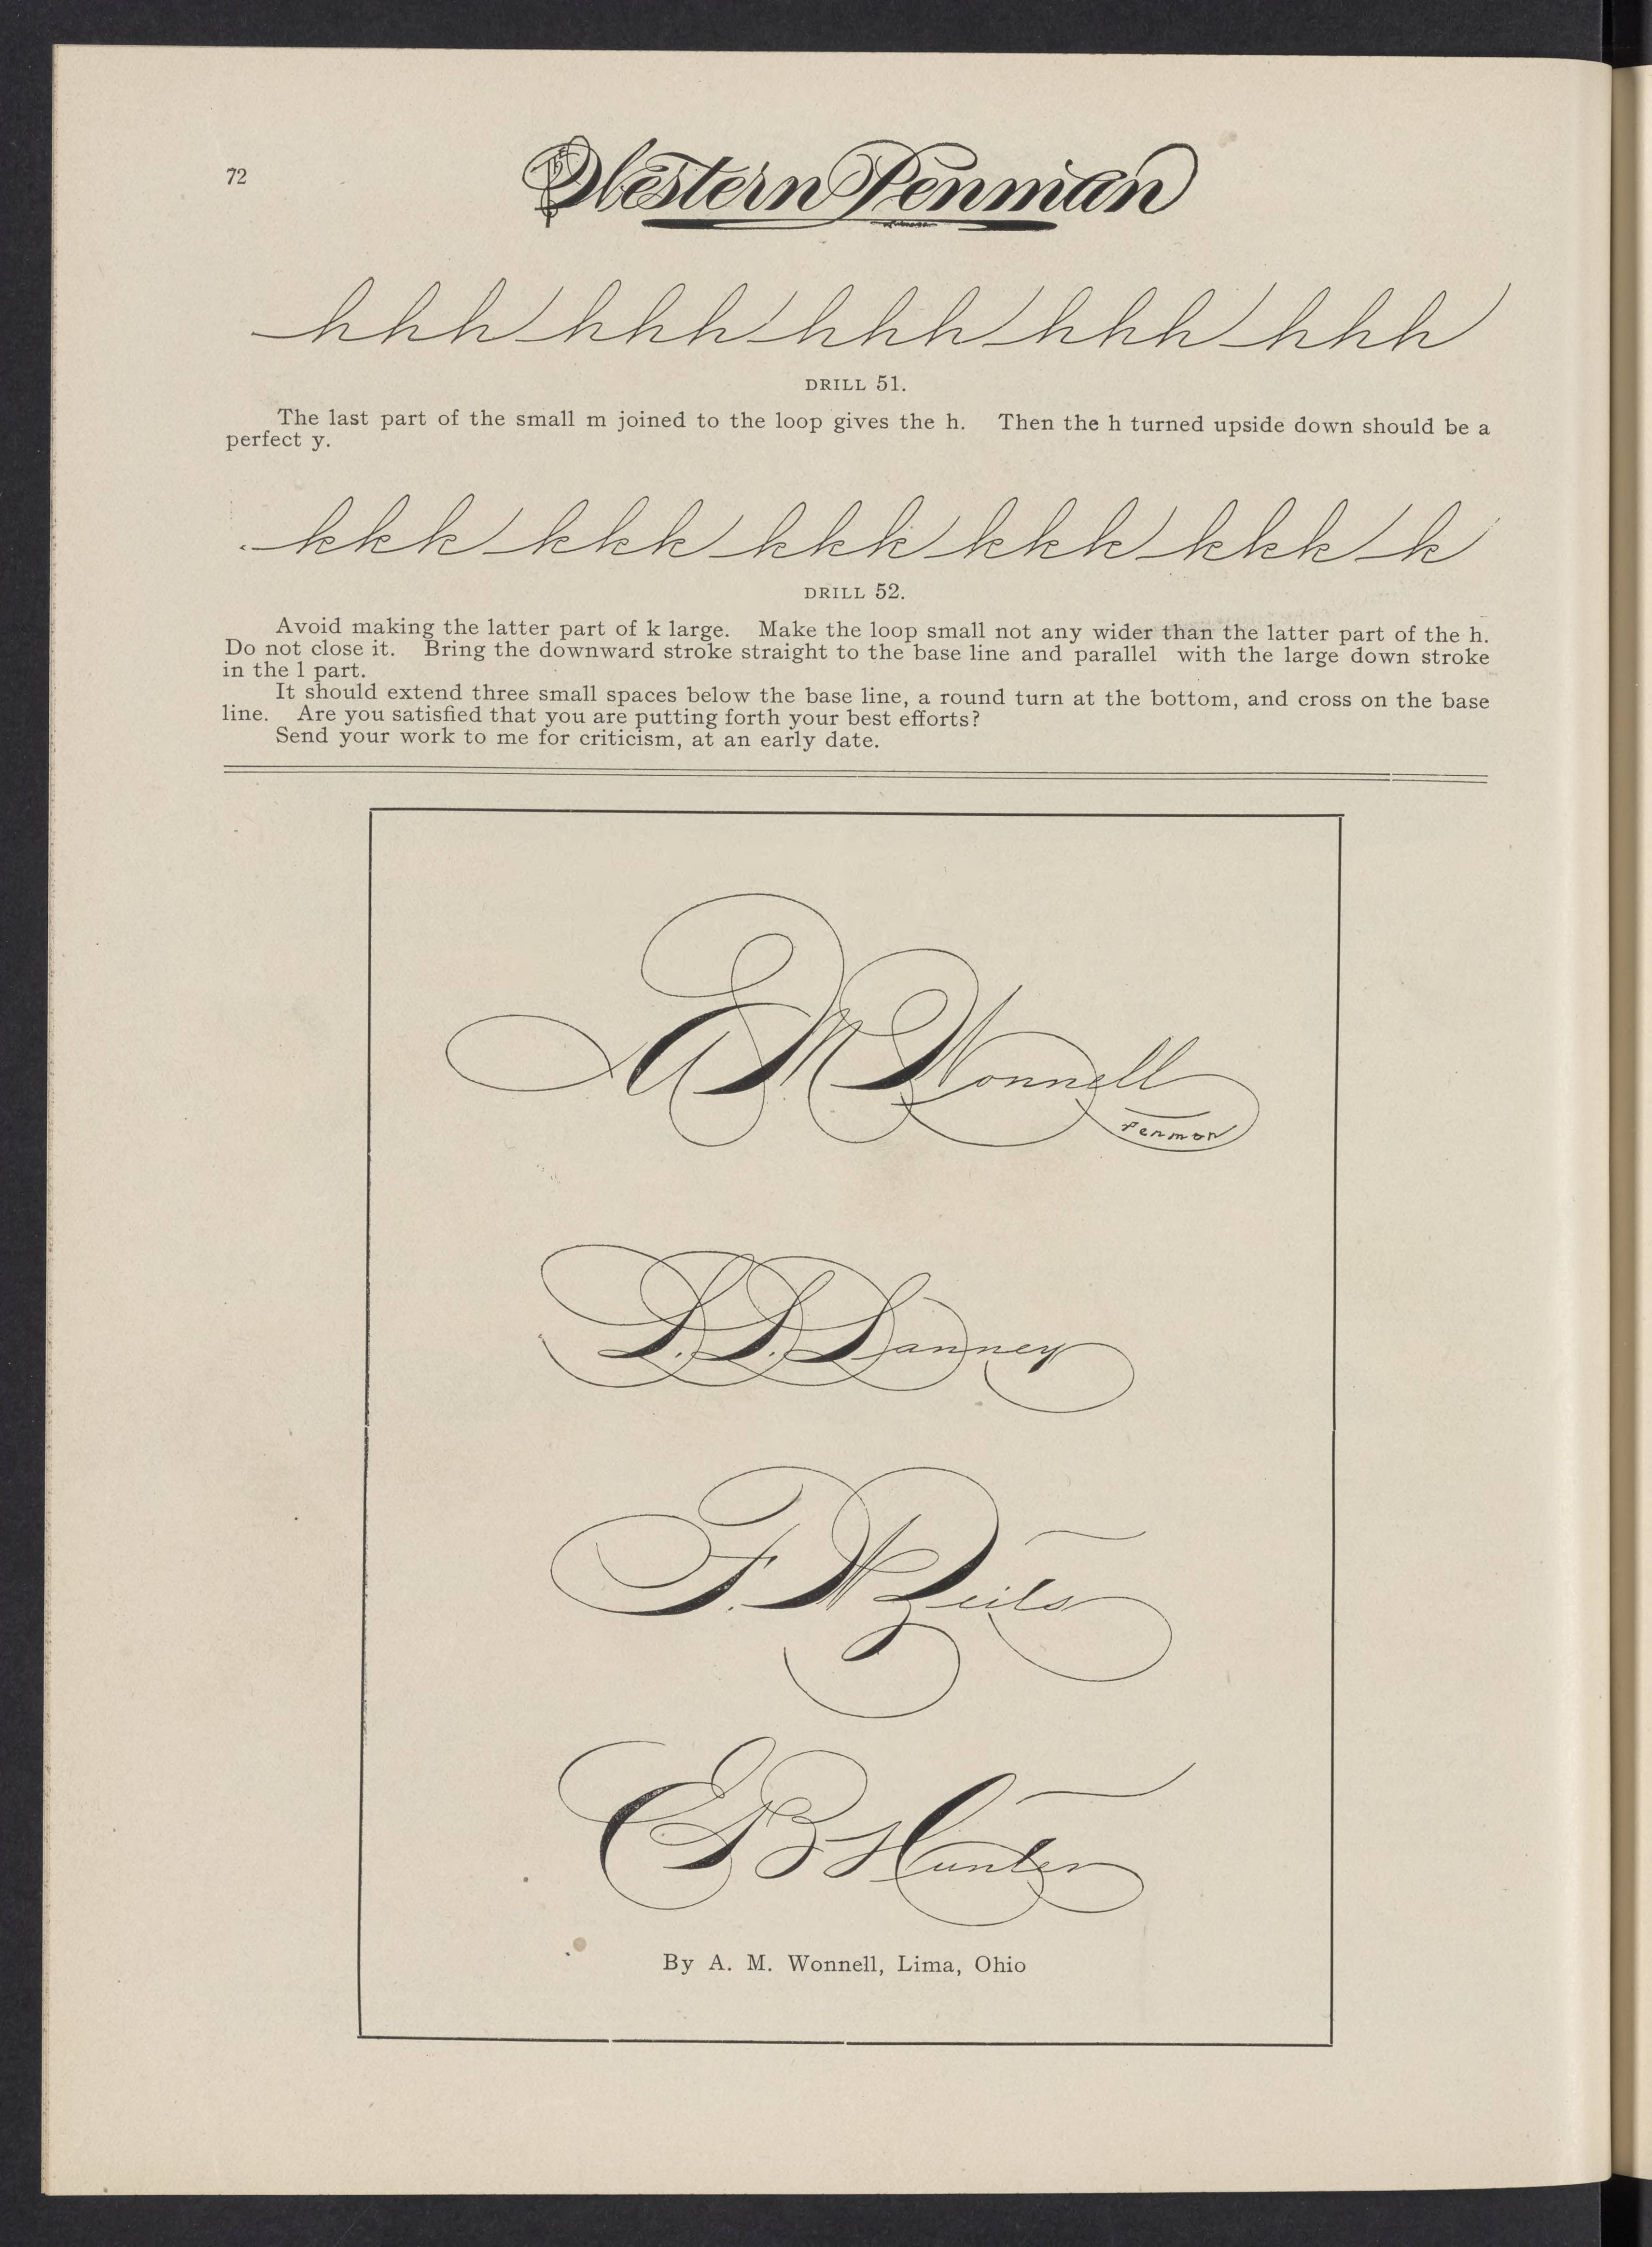 72
The Western Penman
h h h h h h h h h h h h h h h
DRILL 51.
The last part of the small m joined to the loop gives the h. Then the h turned upside down should be a
perfect y.
k k k k k k k k k k k k k k k k
DRILL 52.
Avoid making the latter part of k large. Make the loop small not any wider than the latter part of the h.
Do not close it. Bring the downward stroke straight to the base line and parallel with the large down stroke
in the l part.
It should extend three small spaces below the base line, a round turn at the bottom, and cross on the base
line. Are you satisfied that you are putting forth your best efforts?
Send your work to me for criticism, at an early date.
A M Wonnell
Penman
F. W
E B Hunter
By A. M. Wonnell, Lima, Ohio